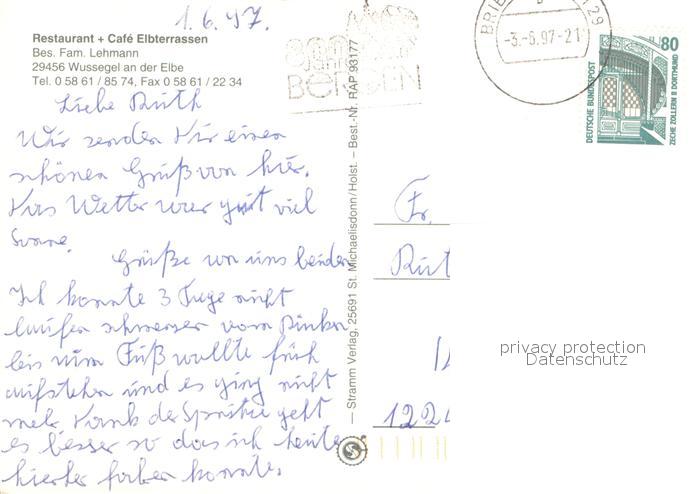 1.6.97.
Restaurant + Café Elbterrassen
Bes. Fam. Lehmann
29456 Wussegel an der Elbe
Tel. 0 58 61 / 85 74, Fax 0 58 61 / 22 34
Liebe Ruth
Wir senden Dir einen
schönen Gruß von hier.
Das Wetter war gut viel
Sonne.
Grüße von uns beiden
Ich konnte 3 Tage nicht
laufen schmerzen vom Rücken
bis zum Fuß wollte früh
aufstehen und es ging nicht
mehr. Dank der Spritze geht
es besser so das ich heute
hierher fahren konnte.
— Stramm Verlag, 25691 St. Michaelisdonn/Holst. – Best.-Nr. RAP 93177
-3.-6.97-21
129
80
DEUTSCHE BUNDESPOST
ZECHE ZOLLERN II DORTMUND
Fr.
Rut
122
privacy protection
Datenschutz